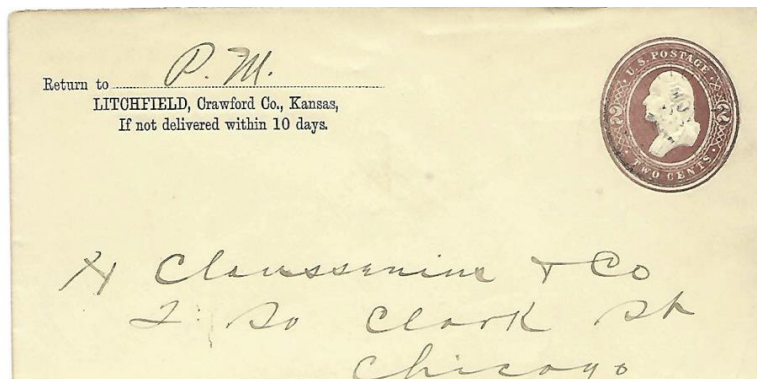 Return to P. M.
LITCHFIELD, Crawford Co., Kansas,
If not delivered within 10 days.
U.S. POSTAGE
2 2
TWO CENTS
H Claussenius & Co
2 So Clark St
Chicago